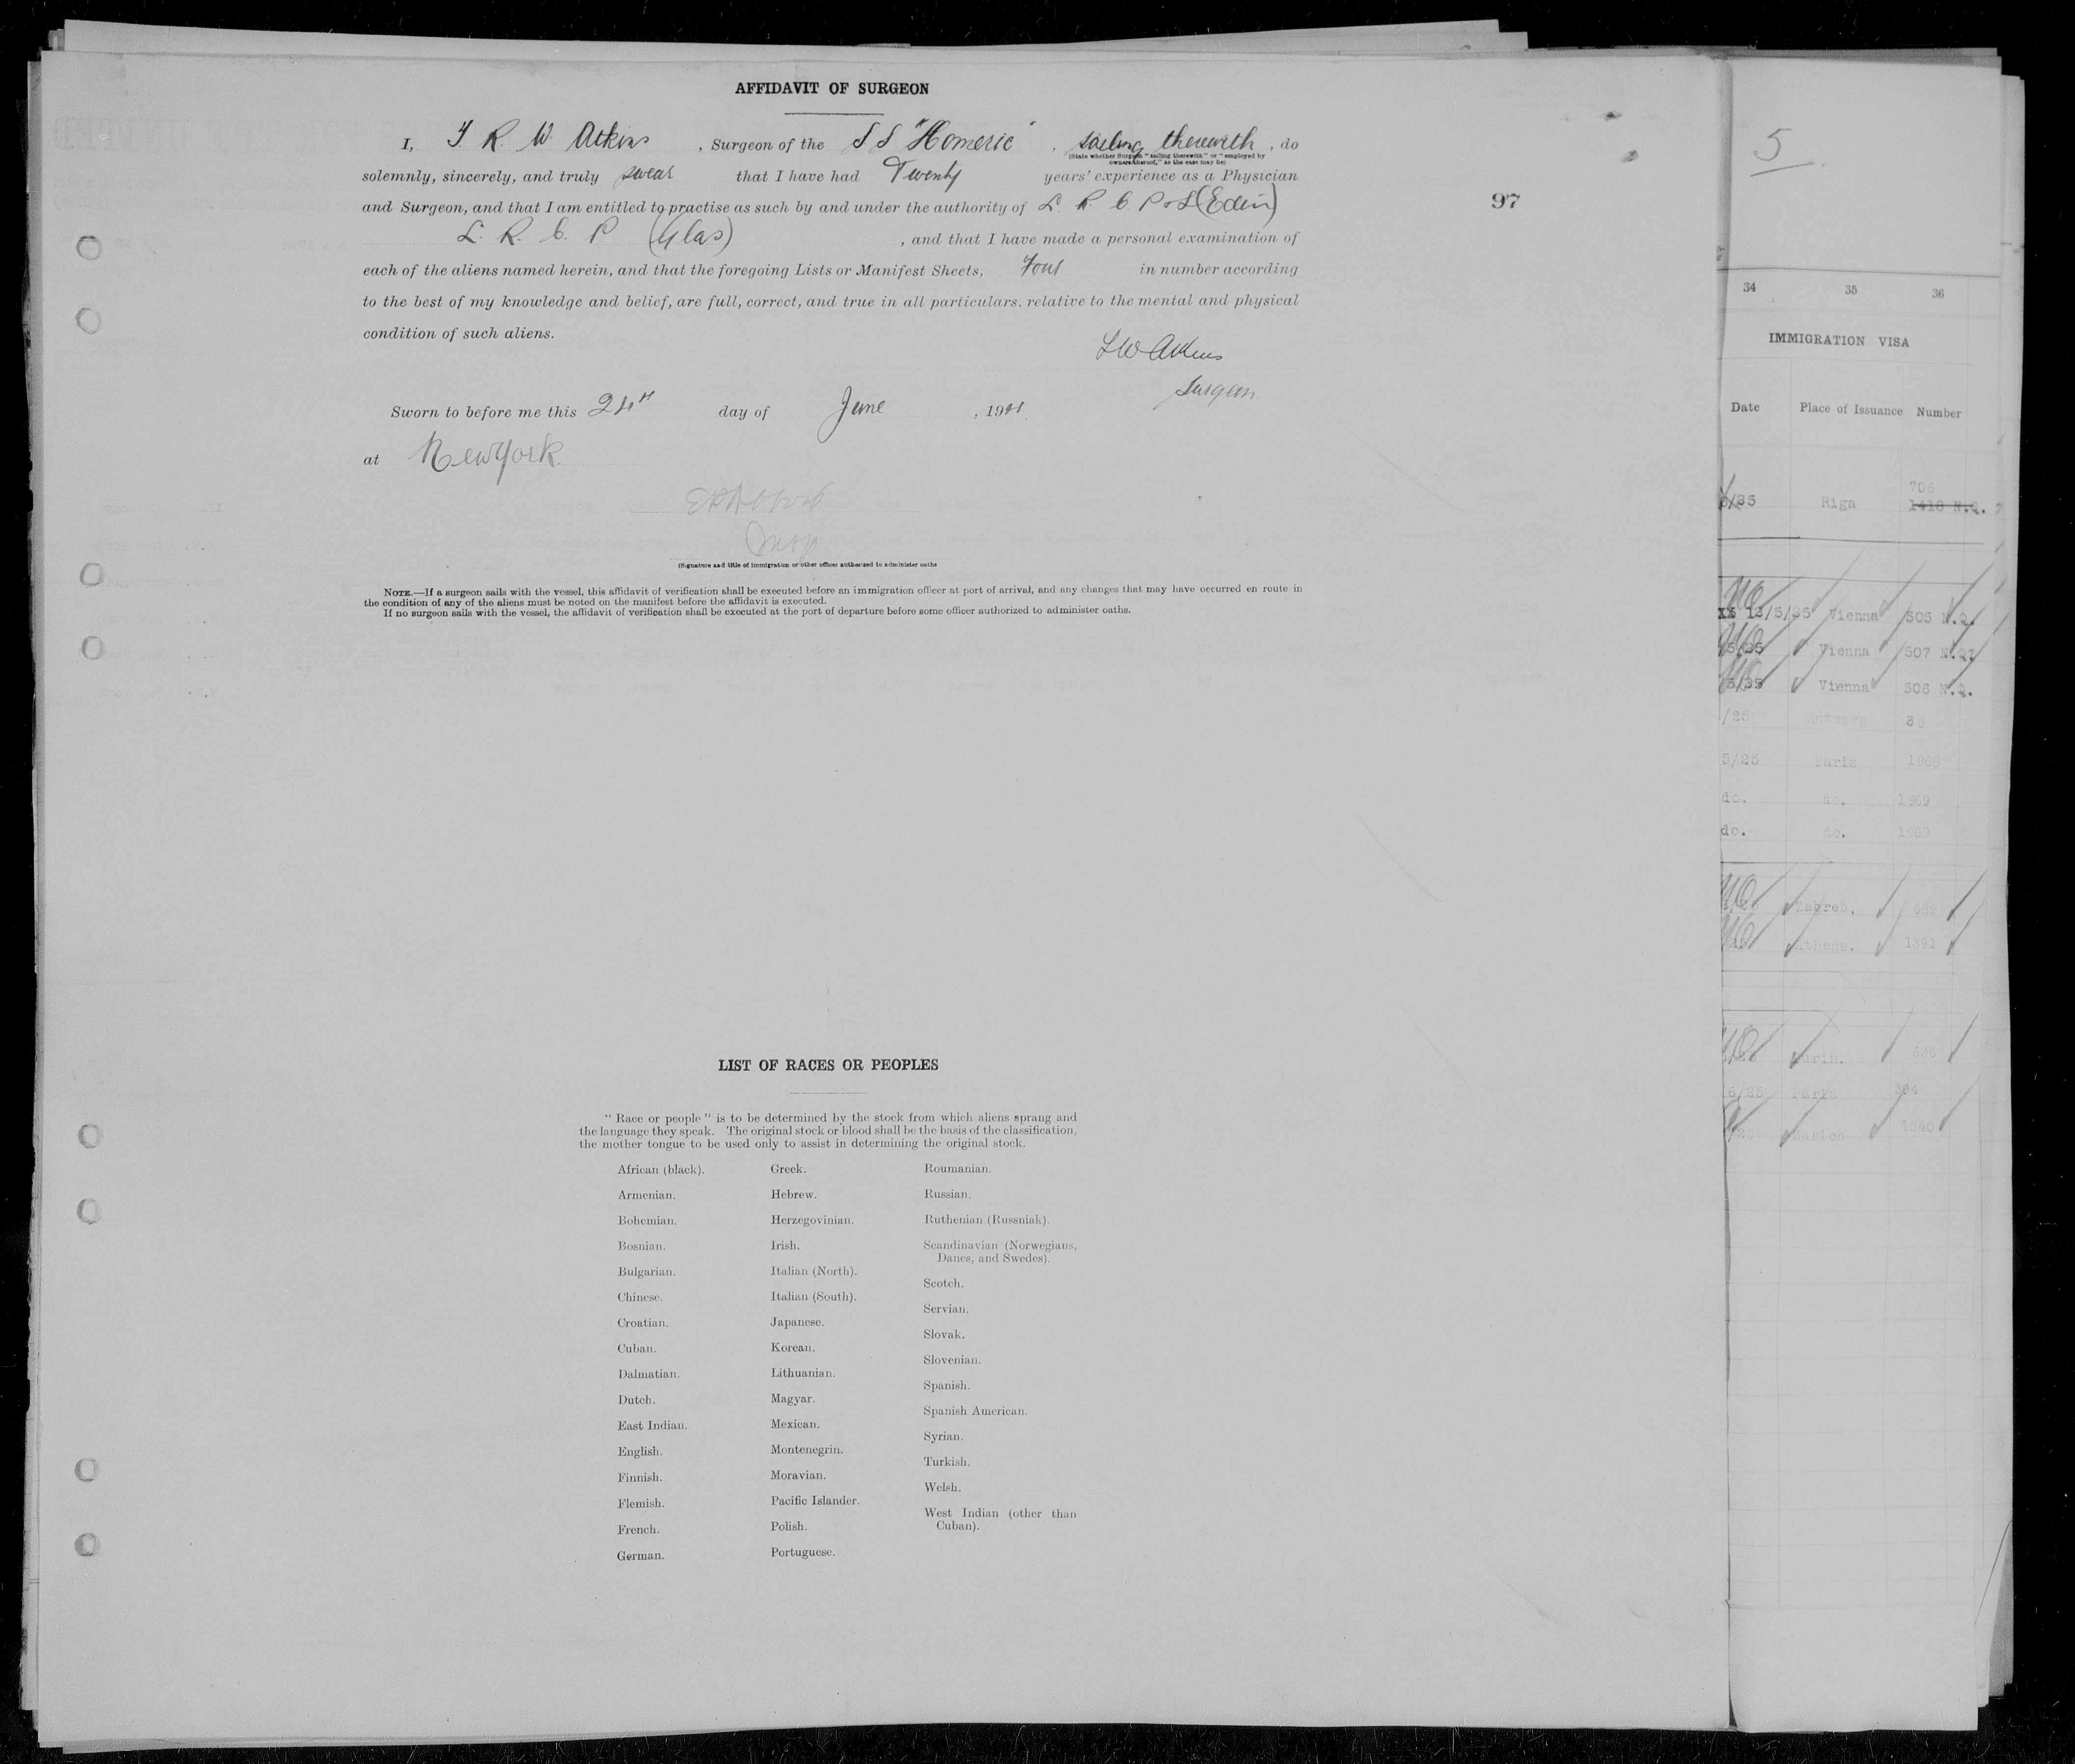 AFFIDAVIT OF SURGEON
I, R. W. Atkins, Surgeon of the S S "Homeric", sailing therewith, do
(State whether Surgeon "sailing therewith" or "employed by
owners thereof," as the case may be)
solemnly, sincerely, and truly swear that I have had Twenty years' experience as a Physician
and Surgeon, and that I am entitled to practise as such by and under the authority of L. R. C. P & S (Edin)
L. R. C. P (Glas), and that I have made a personal examination of
each of the aliens named herein, and that the foregoing Lists or Manifest Sheets, Four in number according
to the best of my knowledge and belief, are full, correct, and true in all particulars, relative to the mental and physical
condition of such aliens.
Atkins
Surgeon
Sworn to before me this 24th day of June, 19
at New York.
Insp
(Signature and title of immigration or other officer authorized to administer oaths
NOTE.—If a surgeon sails with the vessel, this affidavit of verification shall be executed before an immigration officer at port of arrival, and any changes that may have occurred en route in
the condition of any of the aliens must be noted on the manifest before the affidavit is executed.
If no surgeon sails with the vessel, the affidavit of verification shall be executed at the port of departure before some officer authorized to administer oaths.
97
LIST OF RACES OR PEOPLES
" Race or people " is to be determined by the stock from which aliens sprang and
the language they speak. The original stock or blood shall be the basis of the classification,
the mother tongue to be used only to assist in determining the original stock.
African (black).
Armenian.
Bohemian.
Bosnian.
Bulgarian.
Chinese.
Croatian.
Cuban.
Dalmatian.
Dutch.
East Indian.
English.
Finnish.
Flemish.
French.
German.
Greek.
Hebrew.
Herzegovinian.
Irish.
Italian (North).
Italian (South).
Japanese.
Korean.
Lithuanian.
Magyar.
Mexican.
Montenegrin.
Moravian.
Pacific Islander.
Polish.
Portuguese.
Roumanian.
Russian.
Ruthenian (Russniak).
Scandinavian (Norwegians,
Danes, and Swedes).
Scotch.
Servian.
Slovak.
Slovenian.
Spanish.
Spanish American.
Syrian.
Turkish.
Welsh.
West Indian (other than
Cuban).
5
34 35 36
IMMIGRATION VISA
Date Place of Issuance Number
706
/25 Riga 1410 N.Q.
13/5/25 Vienna 505 N.Q.
5/25 Vienna 507 N.Q.
5/25 Vienna 506 N.Q.
/25 Antwerp
5/25 Paris
do. do. 1969
do. do. 1969
Zagreb.
Athens. 1391
Turin.
6/25 Paris 394
Zurich 1340